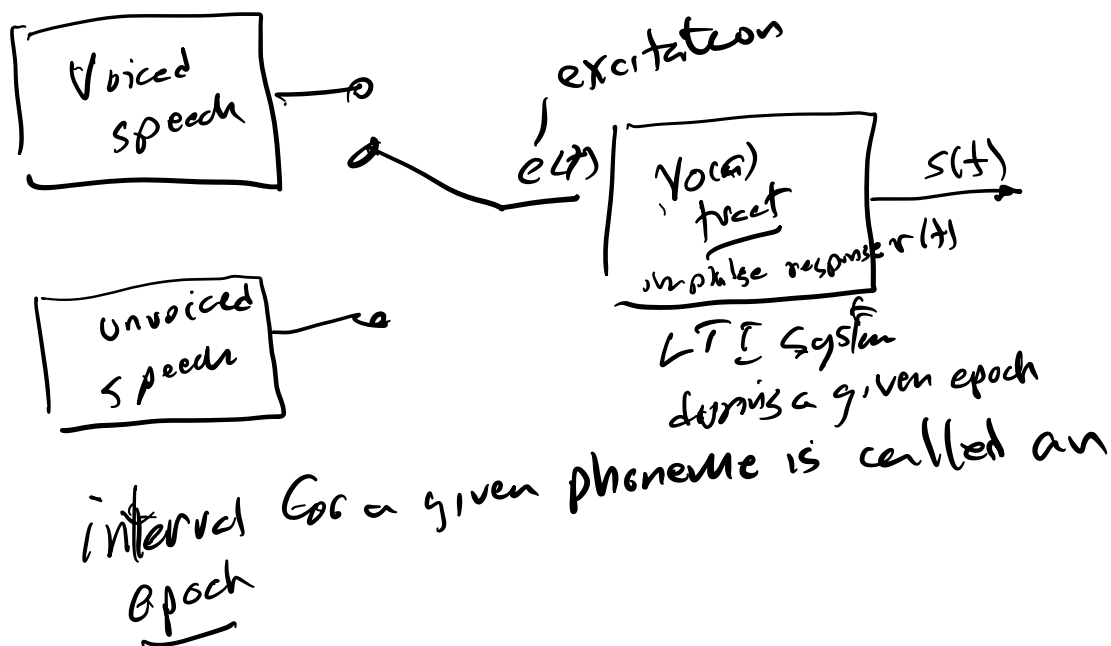 Voiced
speech
excitation
e(t)
Vocal
tract
impulse response r(t)
s(t)
unvoiced
speech
LTI System
during a given epoch
interval for a given phoneme is called an
epoch